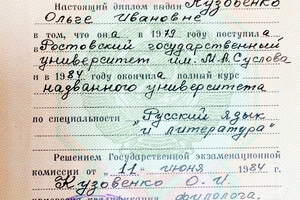 Настоящий диплом выдан Кузовенко
Ольге Ивановне
в том, что она в 1979 году поступила в
Ростовский государственный
университет им. М.А Суслова
и в 1984 году окончила полный курс
названного университета
по специальности „Русский язык
и литература"
Решением Государственной экзаменационной
комиссии от „11" июня 1984 г.
Кузовенко О. И.
присвоена квалификация филолога.